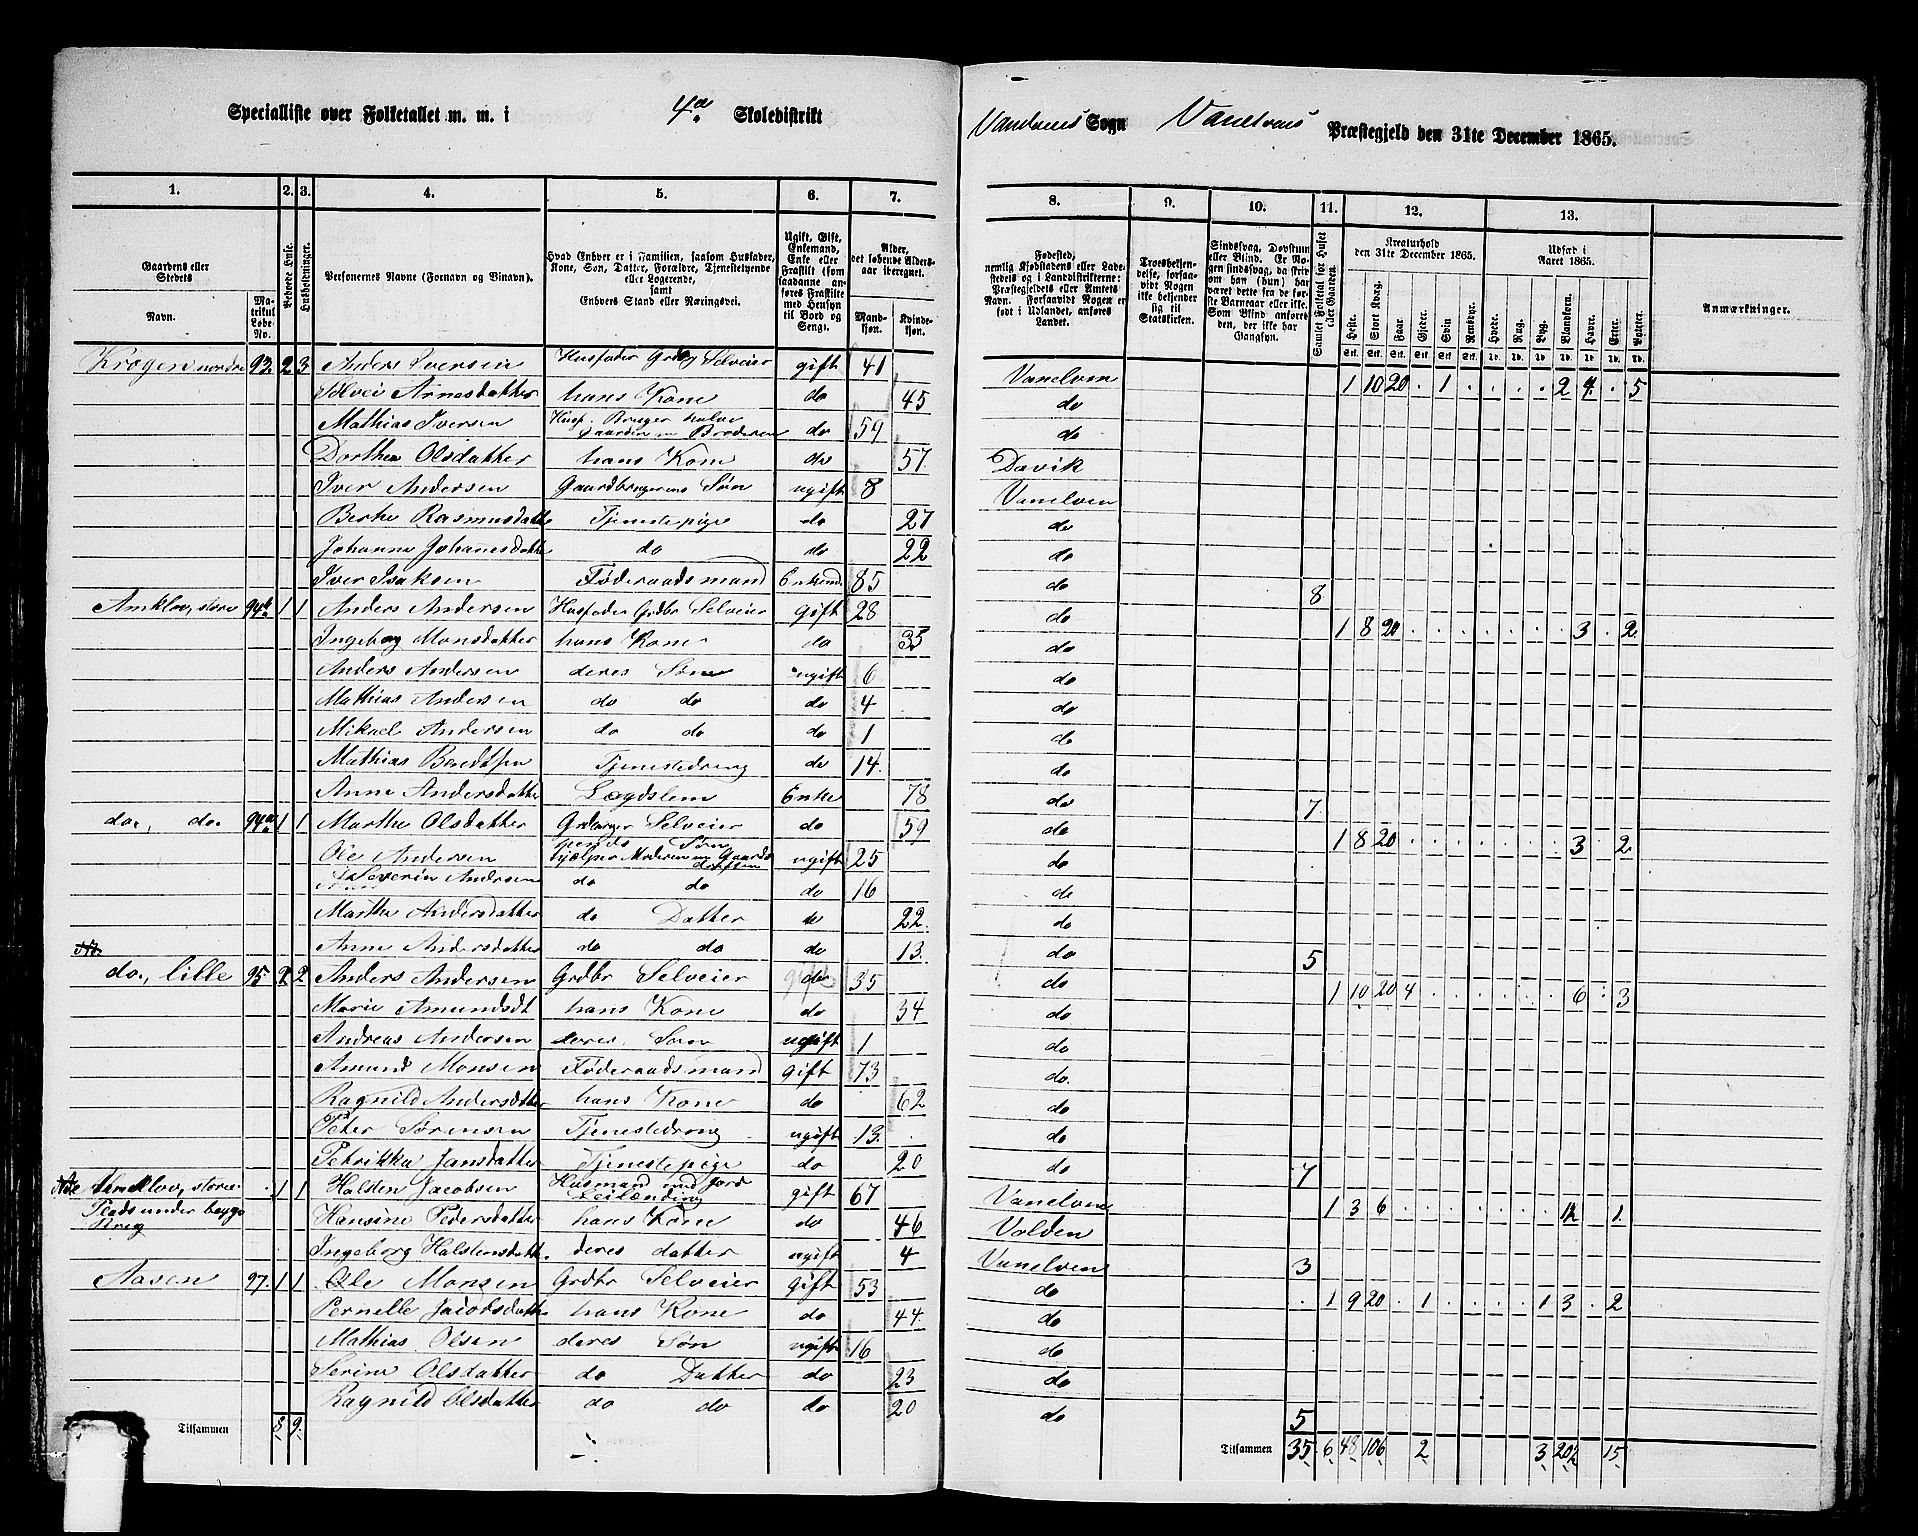 Specialliste over Folketallet m. m. i 4a Skoledistrikt Vanelvens Sogn Vanelvens Præstegjeld den 31te December 1865.
1. 2. 3. 4. 5. 6. 7. 8. 9. 10. 11. 12. 13.
Gaardens eller Stedets Navn. Matrikul Løbe-No. Beboede Huse. Husholdninger. Personernes Navne (Fornavn og Tilnavn). Hvad Enhver er i Familien, saasom Husfader, Kone, Søn, Datter, Forældre, Tjenestetyende eller Logerende, samt Enhvers Stand eller Næringsvei. Ugift, Gift, Enkemand, Enke eller Fraskilt (som saadanne anføres Fraskilte med Hensyn til Bord og Seng). Alder, det løbende Alders-aar iberegnet. Mandkjøn. Kvindekjøn.
Fødested, nemlig Kjøbstadens eller Ladestedets og i Landdistrikterne: Præstegjeldets eller Amtets Navn. Forsaavidt Nogen er født i Udlandet, anføres Landet. Troesbekjendelse, forsaavidt Nogen ikke bekjender sig til Statskirken. Sindssvag, Døvstum eller Blind. Er Nogen sindssvag, da skrives om han (hun) har været dette fra de første Barneaar eller ikke. Som Blind anføres den, der ikke har Gangsyn. Samlet Folketal for Huset eller Gaarden. Kreaturhold den 31te December 1865. Heste. Stort Kvæg. Faar. Gjeder. Svin. Rensdyr. Udsæd i Aaret 1865. Hvede. Rug. Byg. Blandkorn. Havre. Erter. Poteter. Anmærkninger.
Krogen nordre 93. 2 3 Anders Iversen Husfader Grdbg Selveier gift 41 Vanelven 1 10 20 . 1 . . . . 2 4 . 5
Arnesdatter hans Kone do 45 do
Mathias Iversen Husf. Bruger halve Gaarden m Broderen do 59 do
Dorthea Olsdatter hans Kone do 57. Davik
Iver Andersen Gaardbrugerens Søn ugift 8 Vanelven
Berthe Rasmusdatter Tjenestepige do 27 do
Johanne Johanesdatter do do 22 do
Iver Isaksen Føderaadsmand Enkemd. 85 do 8
Amklov, store 94 1 1 Anders Andersen Husfader Grdbr Selveier gift 28 do 1 8 20 3 . 2
Ingeborg Monsdatter hans Kone do 35 do
Anders Andersen deres Søn ugift 6 do
Mathias Andersen do do do 4 do
Mikael Andersen do do do 1 do
Mathias Bendtsen Tjenestedreng do 14. do
Anne Andersdatter Lægdslem Enke 78 do 7.
do., do. 94 1 1 Marthe Olsdatter Grdbruger Selveier do 59 do 1 8 20 3 . 2
Ole Andersen hendes Søn hjælper Moderen m Gaardsdriften ugift 25 do
Severin Andersen do do do 16 do
Marthe Andersdatter do Datter do 22. do
Anne Andersdatter do do do 13. do 5
do., lille 95 2 2 Anders Andersen Grdbr Selveier do 35 do 1 10 20 4 6 . 3
Marie Amundsdt hans Kone do 34 do
Andreas Andersen deres Søn ugift 1 do
Amund Monsen Føderaadsmand gift 73 do.
Ragnild Andersdatter hans Kone do 62 do
Peter Sørensen Tjenestedreng ugift 13. do
Petrikka Jansdatter Tjenestepige do 20 do 7
Amklov, store . 1 1 Halsten Jacobsen Husmand med Jord Leilænding gift 67 Vanelven 1 3 6 1.
Plads under
Hansine Pedersdatter hans Kone do 46 Volden
Ingeborg Halstensdatt. deres datter ugift 4 Vanelven 3
Aasen 97. 1 1 Ole Monsen Grdbr Selveier gift 53 do . 1 9 20 . 1 1 3 . 2
Pernille Jacobsdatter hans Kone do 44. do
Mathias Olsen deres Søn ugift 16 do
Serine Olsdatter do Datter do 23 do
Ragnild Olsdatter do do do 20 do 5
Tilsammen 8. 9. Tilsammen 35 6 48 106 2 3 20½ 15